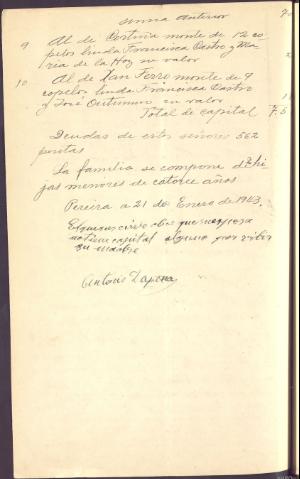 Suma anterior 70
9 Al de Cortiña monte de 12 co
pelos linda Francisca Castro y Ma
ria de la Hoz su valor
10 Al de San Pedro monte de 9
copelos linda Francisca Castro
y José su valor
Total de capital
Deudas de estos señores 562
pesetas
La familia se compone de 2 hi
jas menores de catorce años
Pereira a 21 de Enero de 1943.
no tiene capital alguno por vivir
su madre
Antonio Lapena